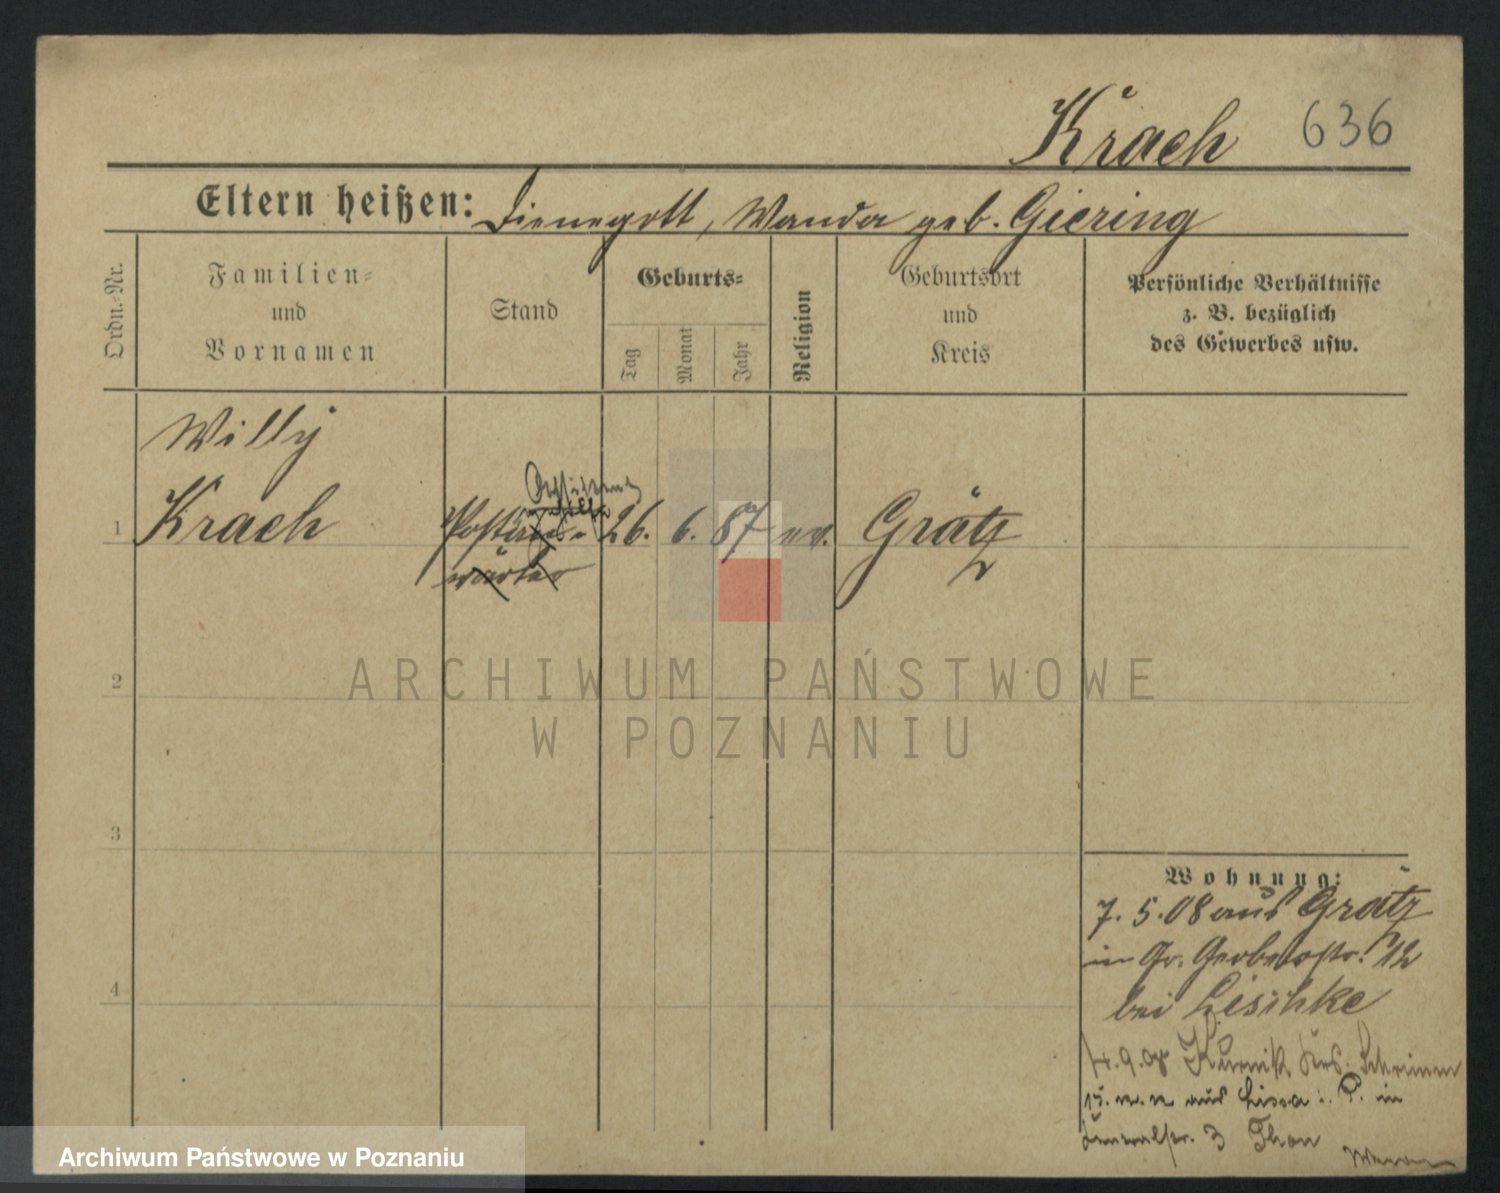 Krach 636
Eltern heißen: Dienegott, Wanda geb. Giering
Ordn.-Nr.
Familien-
und
Vornamen
Stand
Geburts-
Tag
Monat
Jahr
Religion
Geburtsort
und
Kreis
Persönliche Verhältnisse
z. B. bezüglich
des Gewerbes usw.
Willy
1 Krach 26. 6. 87 ev. Grätz
2
3
4
Wohnung:
7. 5. 08 aus Grätz
in Gr. Gerberstr. 12
bei Lischke
4. 9. 08 Kurnik Krs. Schrimm
aus Lissa i. P. in
3
ARCHIWUM PAŃSTWOWE
W POZNANIU
Archiwum Państwowe w Poznaniu